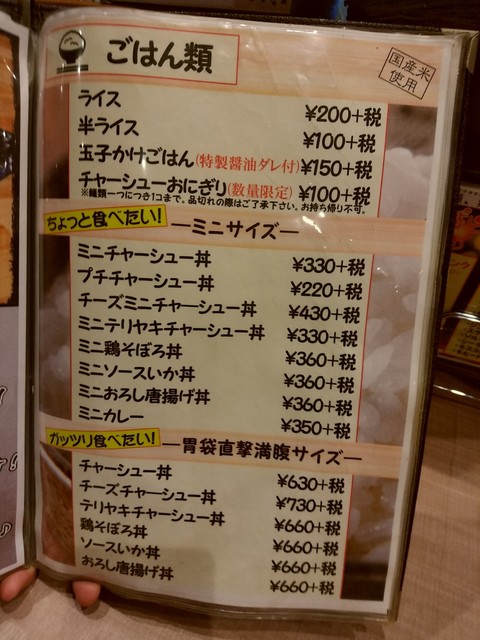 ごはん類
国産米
使用
ライス ¥200+税
半ライス ¥100+税
玉子かけごはん(特製醤油ダレ付) ¥150+税
チャーシューおにぎり(数量限定) ¥100+税
※麺類一つにつき1コまで。品切れの際はご了承下さい。お持ち帰り不可。
ちょっと食べたい! —ミニサイズ—
ミニチャーシュー丼 ¥330+税
プチチャーシュー丼 ¥220+税
チーズミニチャーシュー丼 ¥430+税
ミニテリヤキチャーシュー丼 ¥330+税
ミニ鶏そぼろ丼 ¥360+税
ミニソースいか丼 ¥360+税
ミニおろし唐揚げ丼 ¥360+税
ミニカレー ¥350+税
ガッツリ食べたい! —胃袋直撃満腹サイズ—
チャーシュー丼 ¥630+税
チーズチャーシュー丼 ¥730+税
テリヤキチャーシュー丼 ¥660+税
鶏そぼろ丼 ¥660+税
ソースいか丼 ¥660+税
おろし唐揚げ丼 ¥660+税